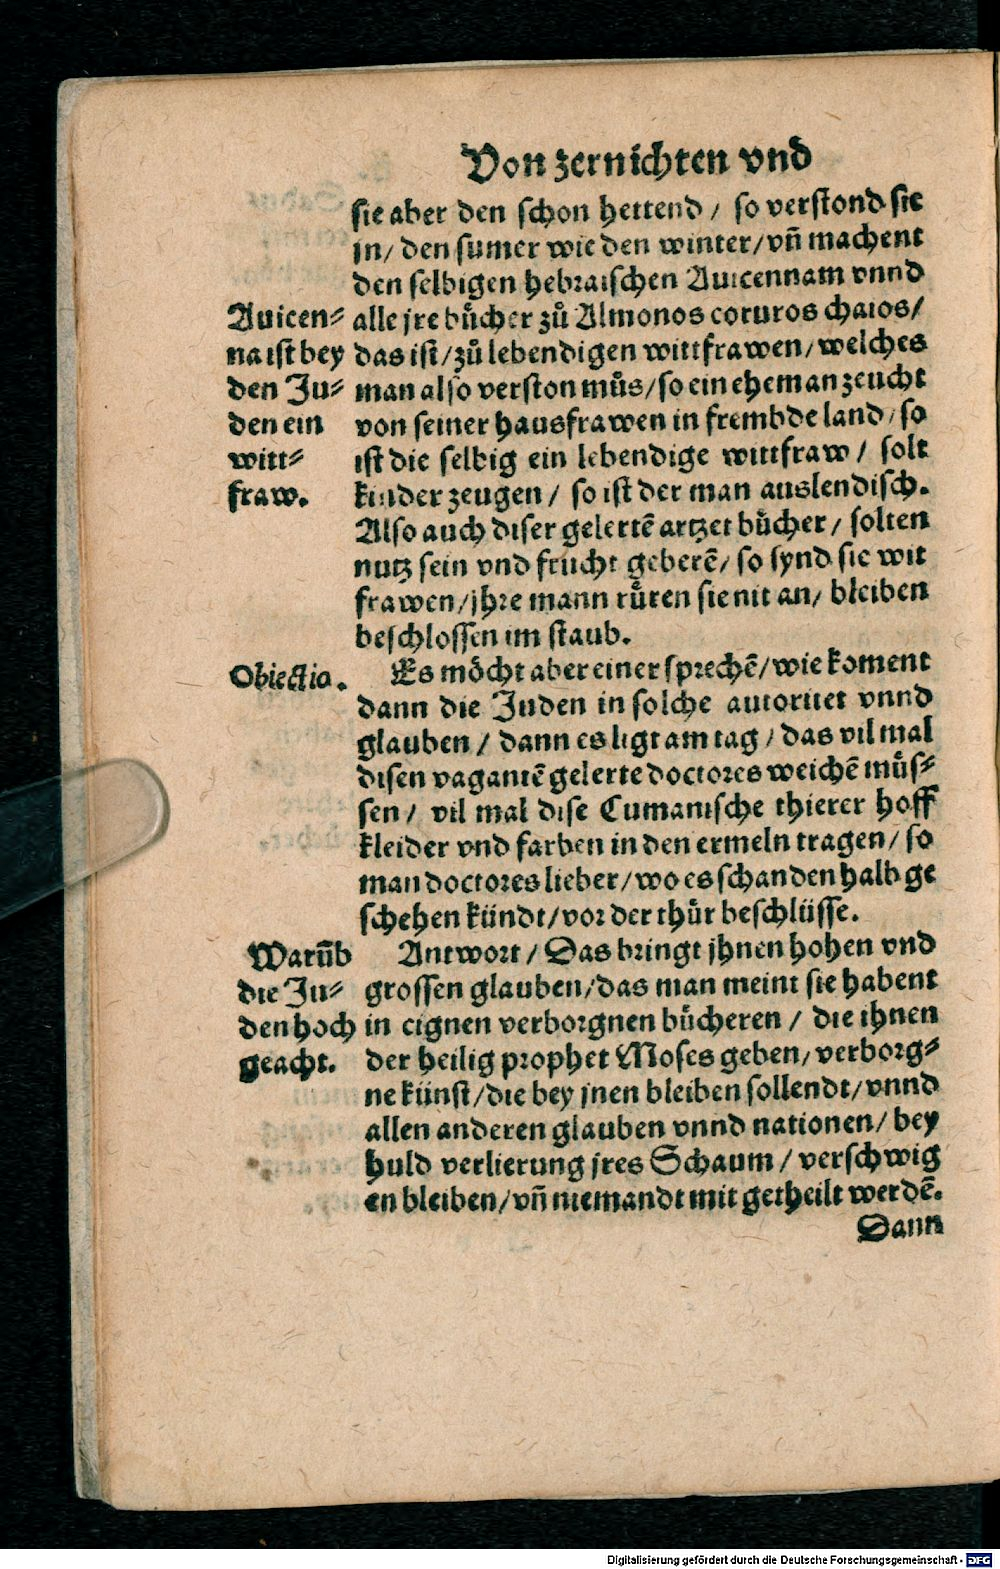 Von zernichten vnd
sie aber den schon hettend / so verstond sie
jn / den sumer wie den winter / vñ machent
den selbigen hebraischen Auicennam vnnd
alle jre bücher zů Almonos coruros chaios /
das ist / zů lebendigen wittfrawen / welches
man also verston můs / so ein eheman zeucht
von seiner hausfrawen in frembde land / so
ist die selbig ein lebendige wittfraw / solt
kinder zeugen / so ist der man auslendisch.
Also auch diser gelertē artzet bücher / solten
nutz sein vnd frucht geberē / so synd sie wit
frawen / jhre mann rüren sie nit an / bleiben
beschlossen im staub.
Auicen=
na ist bey
den Ju=
den ein
witt=
fraw.
Es möcht aber einer sprechē / wie koment
dann die Juden in solche autoritet vnnd
glauben / dann es ligt am tag / das vil mal
disen vagantē gelerte doctores weichē müs=
sen / vil mal dise Cumanische thierer hoff
kleider vnd farben in den ermeln tragen / so
man doctores lieber / wo es schanden halb ge
schehen kündt / vor der thür beschlüsse.
Obiectio.
Antwort / Das bringt jhnen hohen vnd
grossen glauben / das man meint sie habent
in eignen verborgnen bücheren / die ihnen
der heilig prophet Moses geben / verborg=
ne künst / die bey jnen bleiben sollendt / vnnd
allen anderen glauben vnnd nationen / bey
huld verlierung jres Schaum / verschwig
en bleiben / vñ niemandt mit getheilt werdē.
Warūb
die Ju=
den hoch
geacht.
Dann
Digitalisierung gefördert durch die Deutsche Forschungsgemeinschaft - DFG